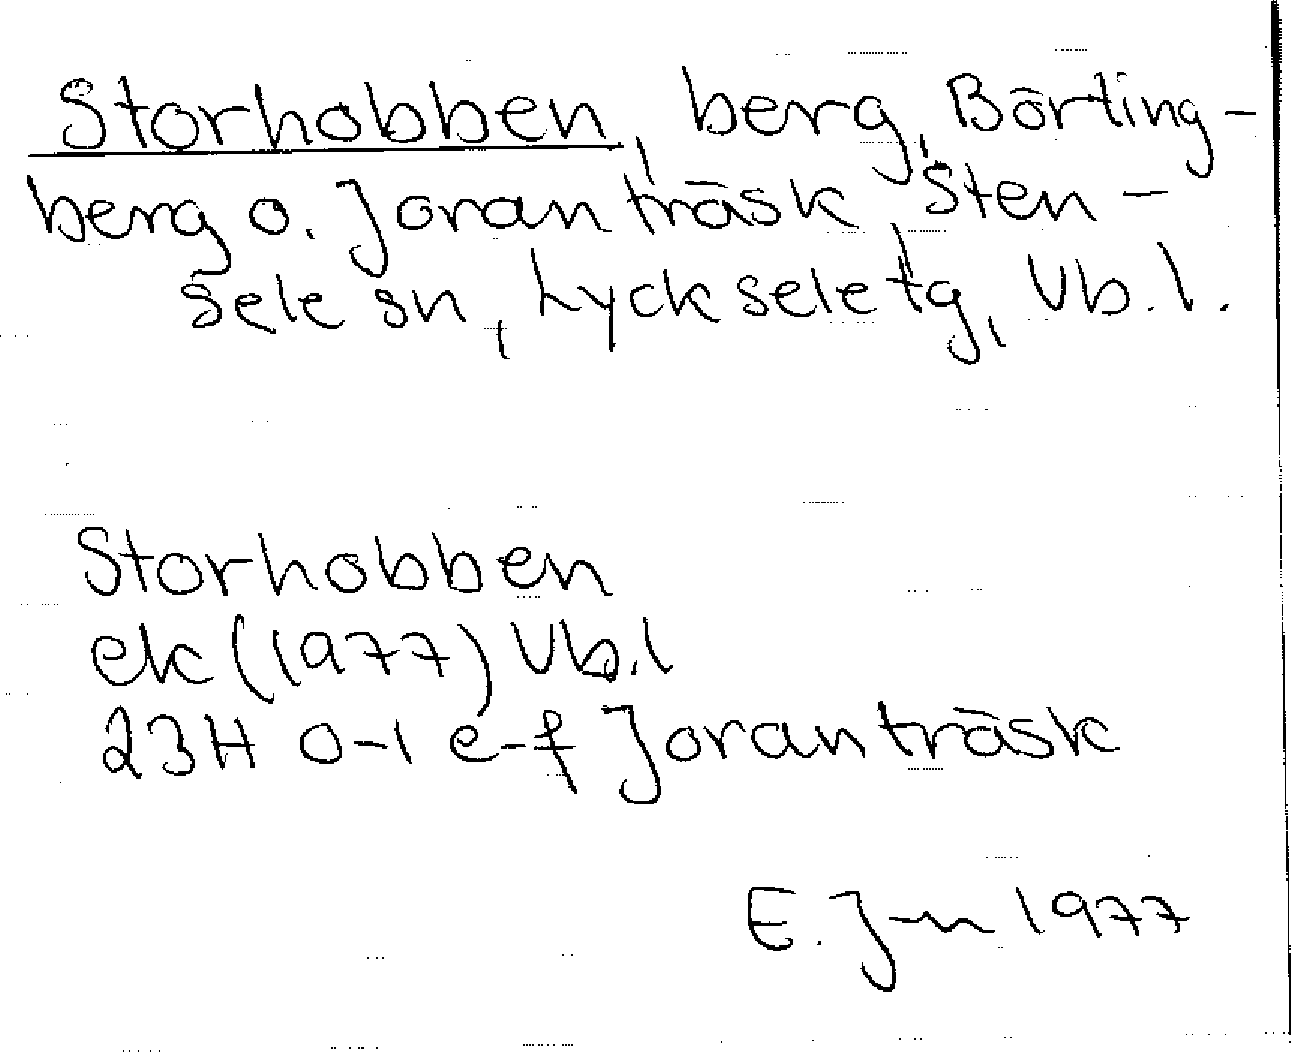 Storhobben, berg, Börting-
berg o. Joranträsk, Sten-
sele sn, Lycksele tg, Vb.l.
Storhobben
ek (1977) Vb.l
23H 0-1 e-f Joranträsk
E. J-n 1977